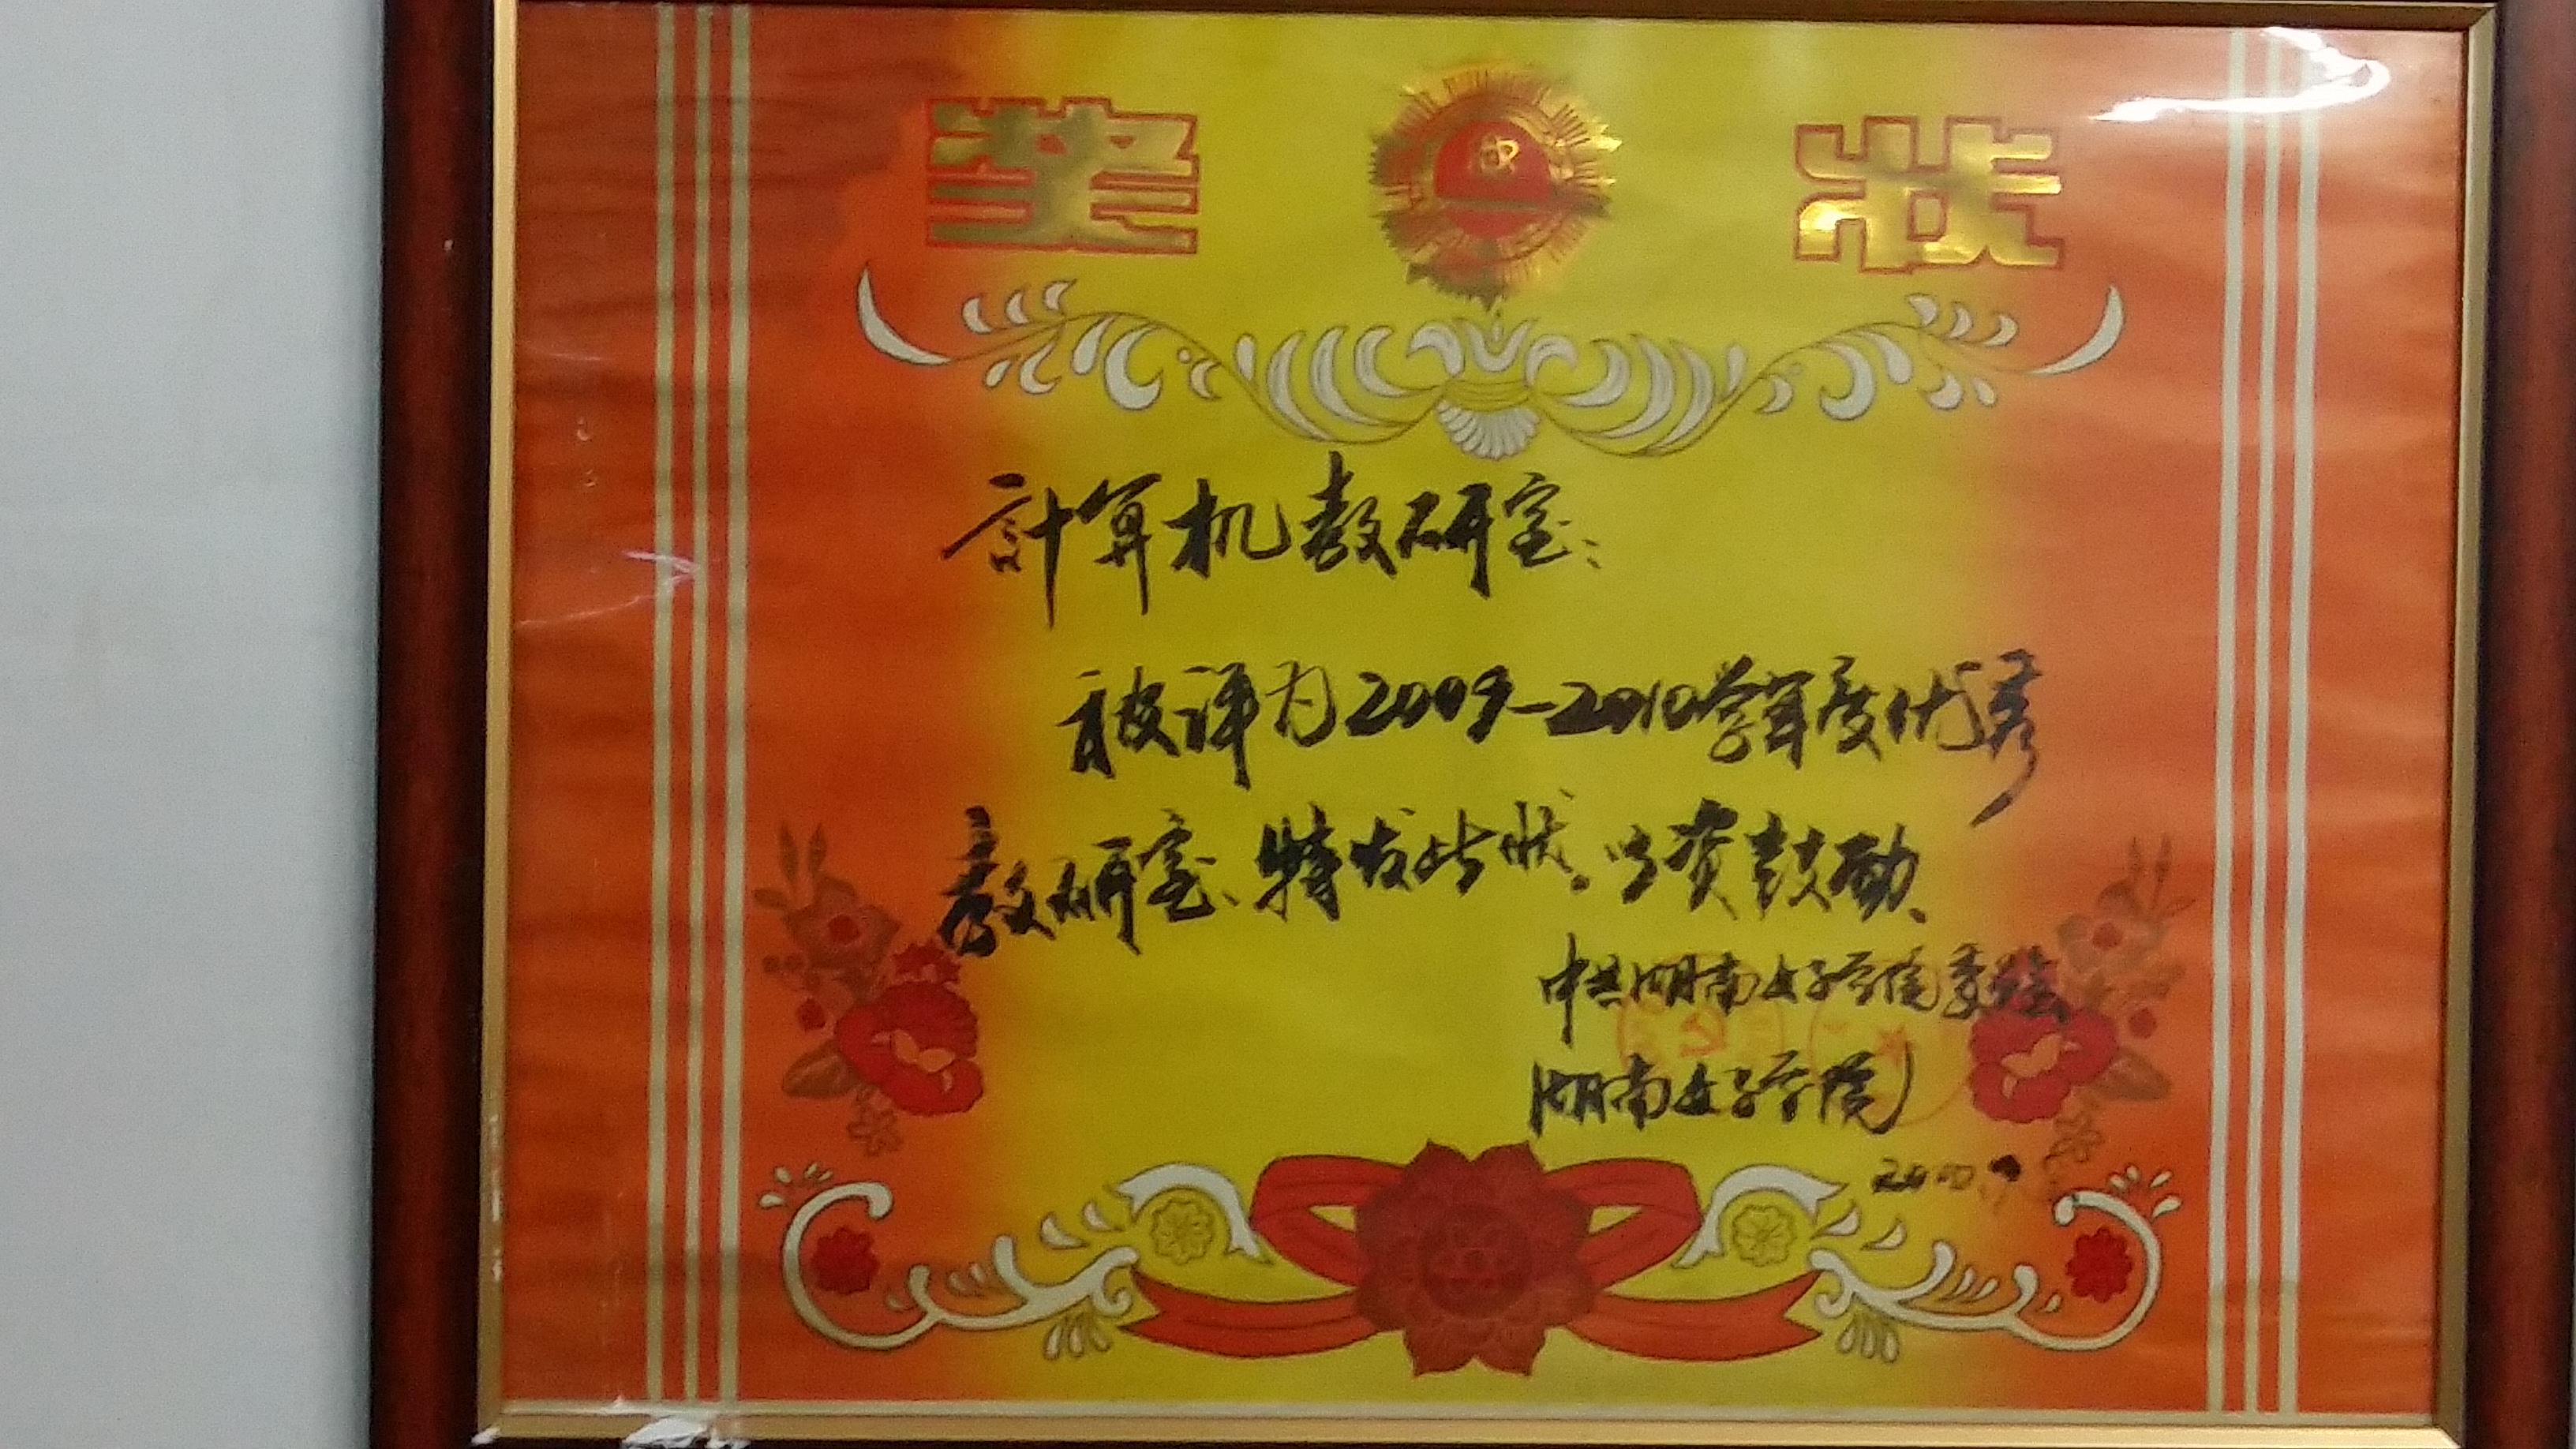 奖 状
計算机教研室：
被评为2009-2010学年度优秀
教研室、特发此状。以资鼓励、
中共湖南女子学院委员会
湖南女子学院
2010.9